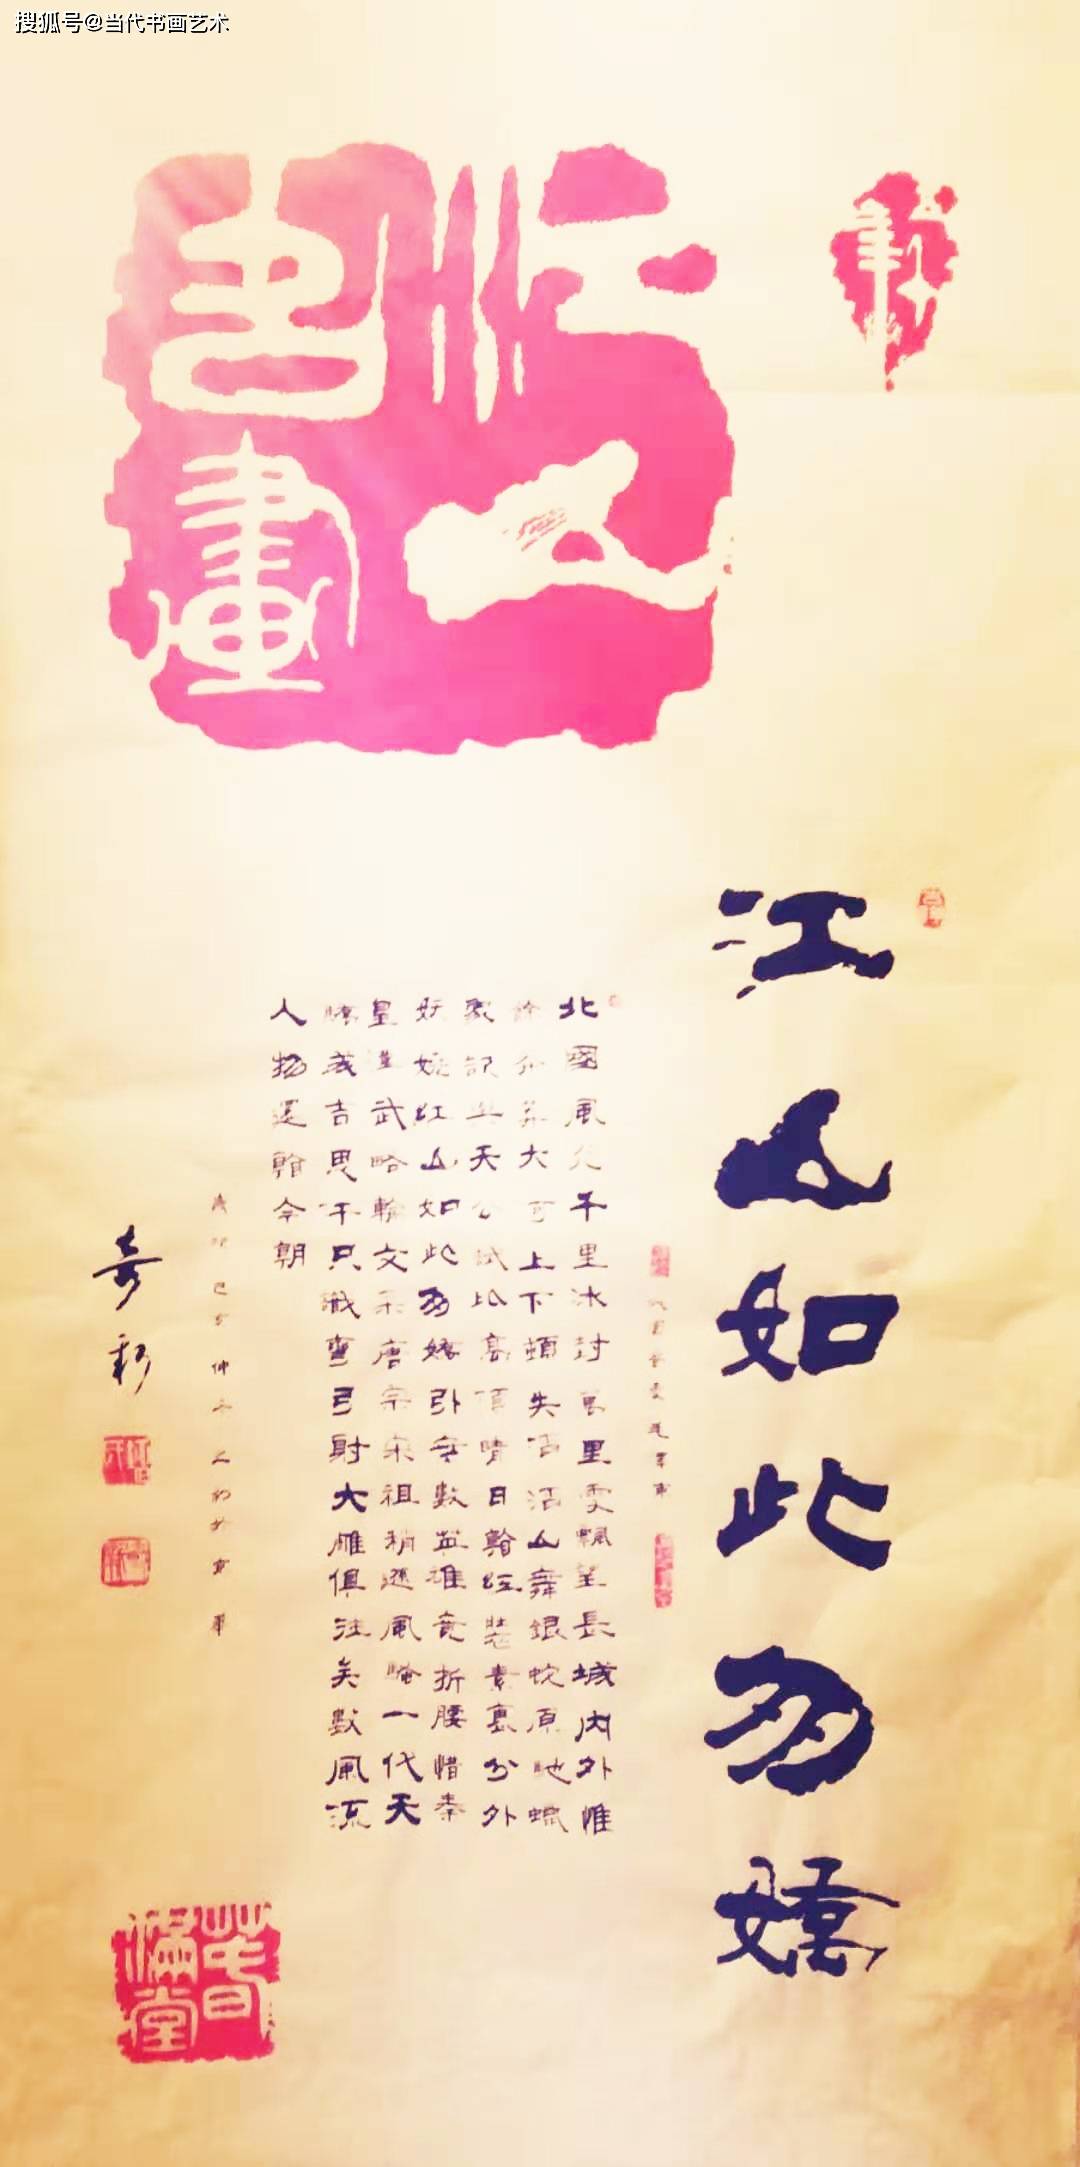 搜狐号@当代书画艺术
江山
畫
江山如此多嬌
北國風光千里冰封萬里雪飄望長城內外惟
餘莽莽大河上下頓失滔滔山舞銀蛇原馳蠟
象欲與天公試比高須晴日看紅裝素裹分外
妖嬈江山如此多嬌引無數英雄競折腰惜秦
皇漢武略輸文采唐宗宋祖稍遜風騷一代天
驕成吉思汗只識彎弓射大雕俱往矣數風流
人物還看今朝
春滿堂